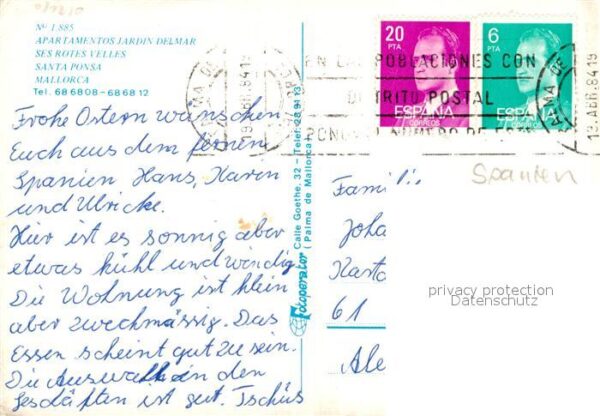 Nº 1.885
APARTAMENTOS JARDIN DELMAR
SES ROTES VELLES
SANTA PONSA
MALLORCA
Tel. 68 68 08 - 68 68 12
Frohe Ostern wünschen
Euch aus dem fernen
Spanien Hans, Karen
und Ulricke.
Hier ist es sonnig aber
etwas kühl und windig
Die Wohnung ist klein
aber zweckmässig. Das
Essen scheint gut zu sein.
Die Auswahl in den
Geschäften ist gut. Tschüs
Fotoperator
Calle Goethe, 32 - Telef. 28 91 13
(Palma de Mallorca
20
PTA
ESPAÑA
CORREOS
6
PTA
ESPAÑA
CORREOS
EN LAS POBLACIONES CON
DISTRITO POSTAL
PONGA EL NUMERO DE ESTE
19 ABR. 84 19
19 ABR. 84 19
Spanien
Famili
Joha
Kasta
61
Ale
privacy protection
Datenschutz